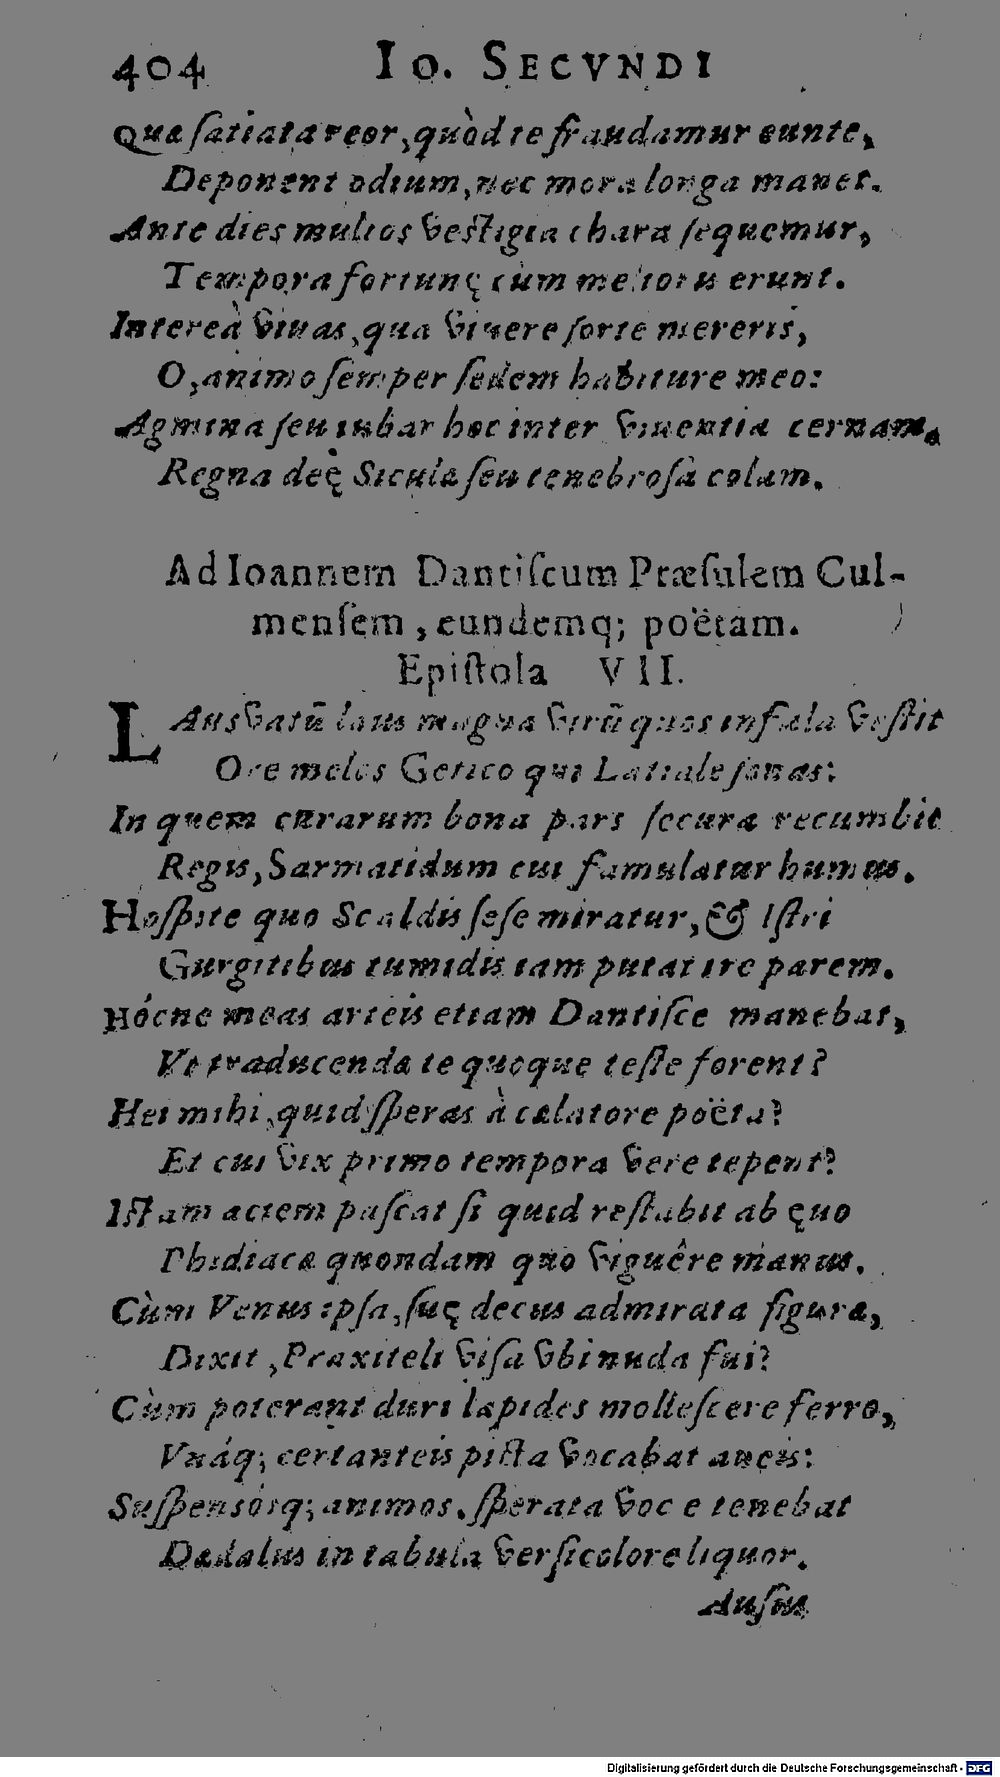 404 IO. SECVNDI
Quæ satiata reor, quòd te fraudamur eunte,
Deponent odium, nec mora longa manet.
Ante dies multos vestigia chara sequemur,
Tempora fortunę cùm melioris erunt.
Intereà viuas, qua viuere sorte mereris,
O, animo semper sedem habiture meo:
Agmina seu iubar hoc inter viuentia cernam,
Regna deę Siculæ seu tenebrosa colam.
Ad Ioannem Dantiscum Præsulem Cul-
mensem, eundemq; poëtam.
Epistola VII.
LAus vatũ laus magna virũ quos infula vestit
Ore melos Getico qui Latiale sonas:
In quem curarum bona pars secura recumbit
Regis, Sarmatidum cui famulatur humus.
Hospite quo Scaldis sese miratur, & Istri
Gurgitibus tumidis iam putat ire parem.
Hócne meas arteis etiam Dantisce manebat,
Vt traducendæ te quoque teste forent?
Hei mihi, quid speras à cælatore poëta?
Et cui vix primo tempora vere tepent?
Istam aciem pascat si quid restabit ab ęquo
Phidiacæ quondam quo viguêre manus.
Cùm Venus ipsa, suę decus admirata figuræ,
Dixit, Praxiteli visa vbi nuda fui?
Cùm poterant duri lapides mollescere ferro,
Vuáq; certanteis picta vocabat aueis:
Suspensósq; animos, sperata voce tenebat
Dædalus in tabula versicolore liquor.
Ausus
Digitalisierung gefördert durch die Deutsche Forschungsgemeinschaft - DFG